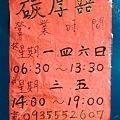 碳厚醇
營業時間
星期一四六日
06:30~13:30
星期三五
14:00~19:00
0935552607